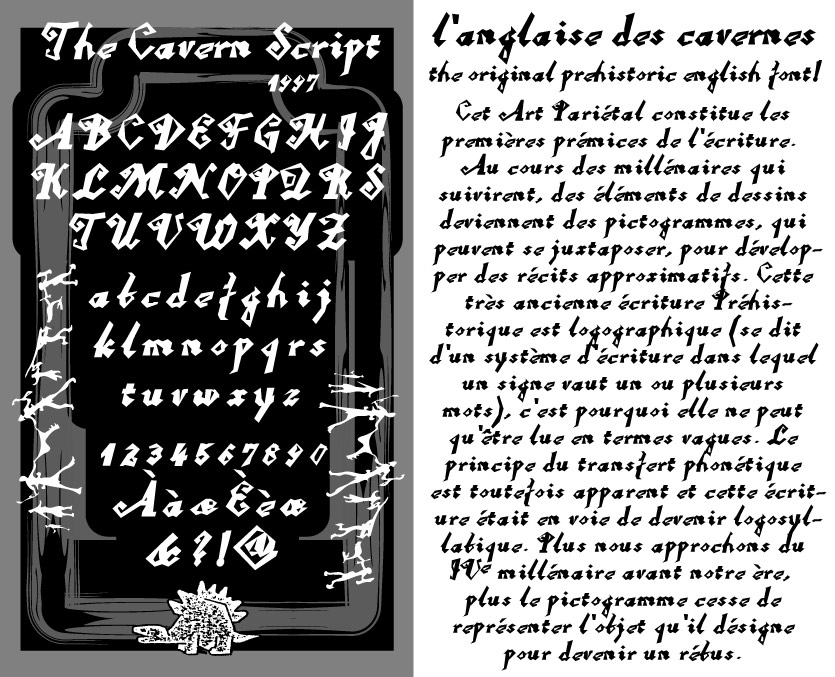 The Cavern Script
1997
ABCDEFGHIJ
KLMNOPQRS
TUVWXYZ
abcdefghij
klmnopqrs
tuvwxyz
1234567890
ÀàæÈèœ
&?!@
l'anglaise des cavernes
the original prehistoric english font!
Cet Art Pariétal constitue les
premières prémices de l'écriture.
Au cours des millénaires qui
suivirent, des éléments de dessins
deviennent des pictogrammes, qui
peuvent se juxtaposer, pour dévelop-
per des récits approximatifs. Cette
très ancienne écriture Préhis-
torique est logographique (se dit
d'un système d'écriture dans lequel
un signe vaut un ou plusieurs
mots), c'est pourquoi elle ne peut
qu'être lue en termes vagues. Le
principe du transfert phonétique
est toutefois apparent et cette écrit-
ure était en voie de devenir logosyl-
labique. Plus nous approchons du
IVe millénaire avant notre ère,
plus le pictogramme cesse de
représenter l'objet qu'il désigne
pour devenir un rébus.